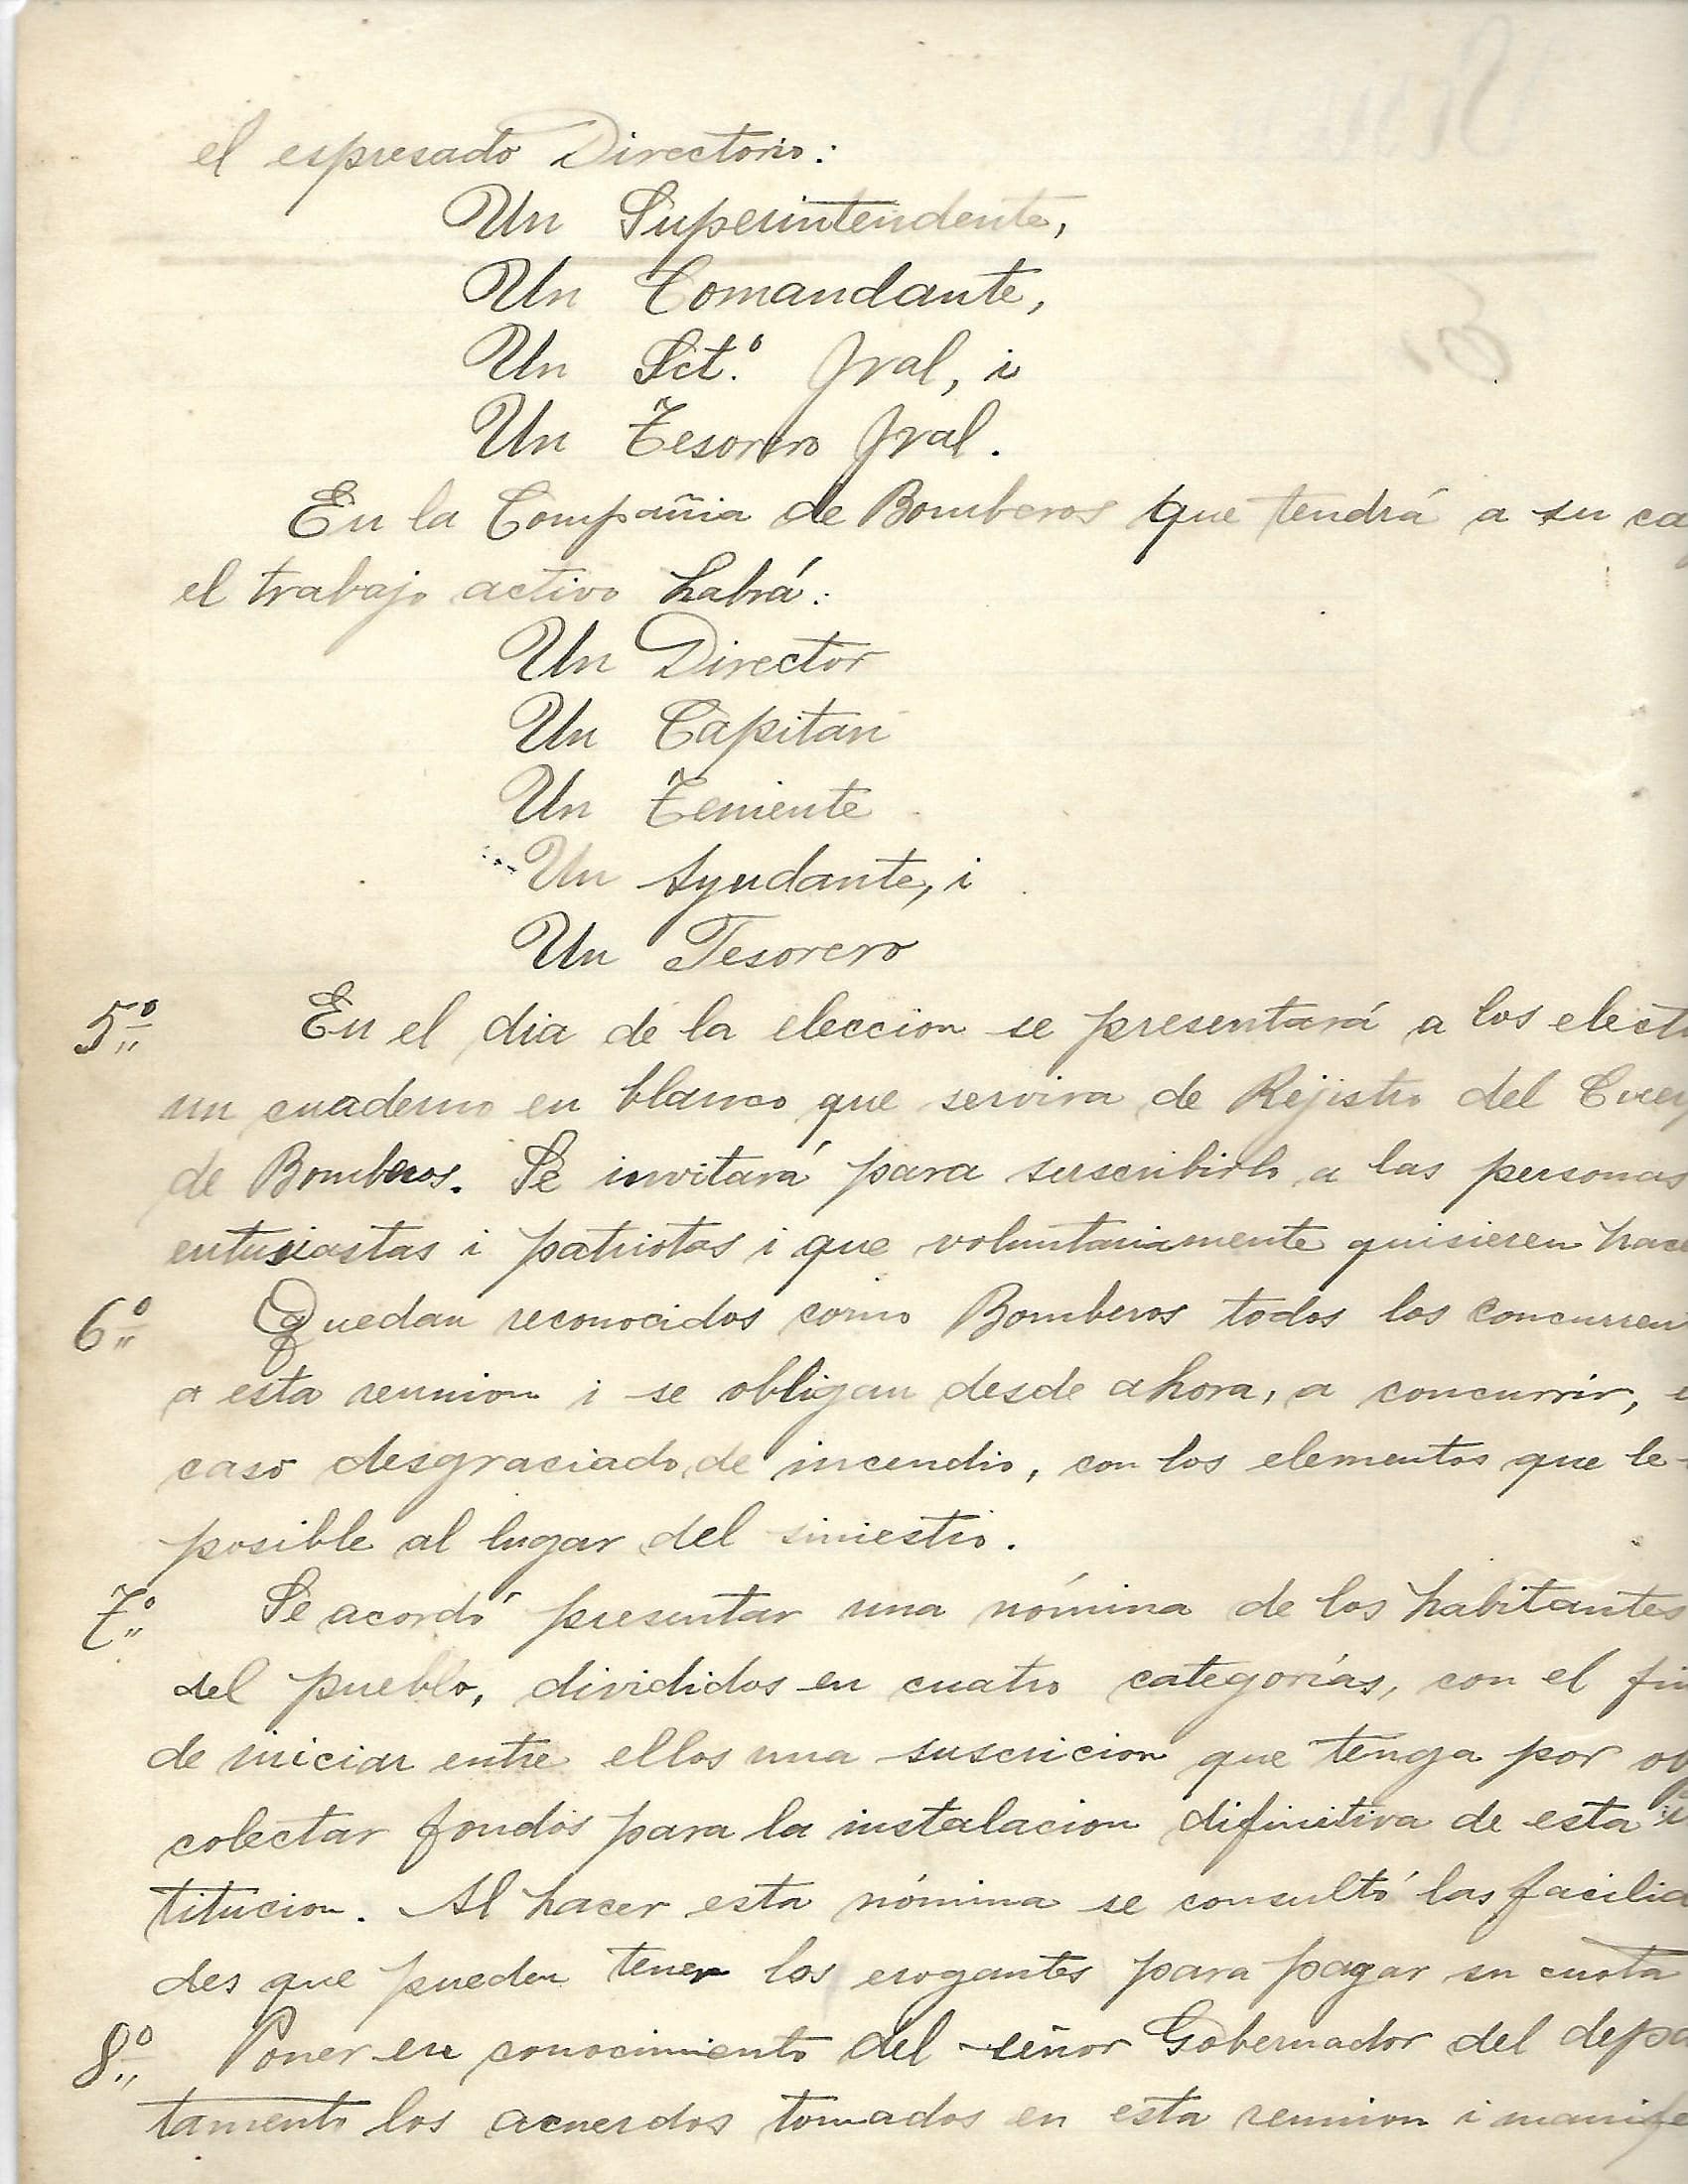 el espresado Directorio:
Un Superintendente,
Un Comandante,
Un Sct.º Jral, i
Un Tesorero Jral.
En la Compañia de Bomberos que tendrá a su ca
el trabajo activo habrá:
Un Director
Un Capitan
Un Teniente
Un Ayudante, i
Un Tesorero
5º En el dia de la eleccion se presentará a los elect
un cuaderno en blanco que servira de Rejistro del Cuer
de Bomberos. Se invitará para suscribirlo a las personas
entusiastas i patriotas i que voluntariamente quisieren hace
6º Quedan reconocidos como Bomberos todos los concurren
a esta reunion i se obligan desde ahora, a concurrir, e
caso desgraciado de incendio, con los elementos que le
posible al lugar del siniestro.
7º Se acordó presentar una nómina de los habitantes
del pueblo, divididos en cuatro categorías, con el fin
de iniciar entre ellos una suscricion que tenga por obj
colectar fondos para la instalacion difinitiva de esta i
titucion. Al hacer esta nómina se consultó las facilida
des que pueden tener los erogantes para pagar su cuota
8º Poner en conocimiento del señor Gobernador del depa
tamento los acuerdos tomados en esta reunion i manife